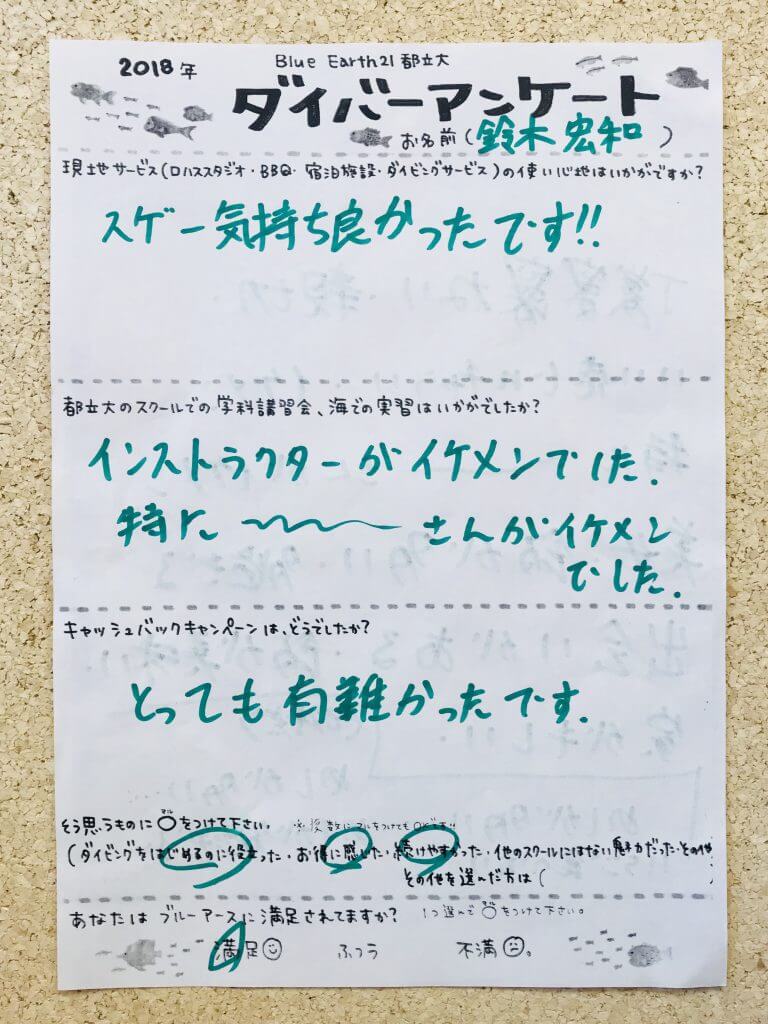 2018年
Blue Earth21 都立大
ダイバーアンケート
お名前(鈴木 宏和)
現地サービス(ロハススタジオ・BBQ・宿泊施設・ダイビングサービス)の使い心地はいかがですか?
スゲー気持ち良かったです!!
都立大のスクールでの学科講習会、海での実習はいかがでしたか?
インストラクターがイケメンでした.
特に さんがイケメン
でした.
キャッシュバックキャンペーンは、どうでしたか?
とっても有難かったです.
そう思うものに○マルをつけて下さい。 ※複数にマルをつけてもOKです!!
(ダイビングをはじめるのに役立った・お得に感じた・続けやすかった・他のスクールにはない魅力だった・その他
その他を選んだ方は(
あなたはブルーアースに満足されてますか? 1つ選んで○をつけて下さい。
満足 ふつう 不満。